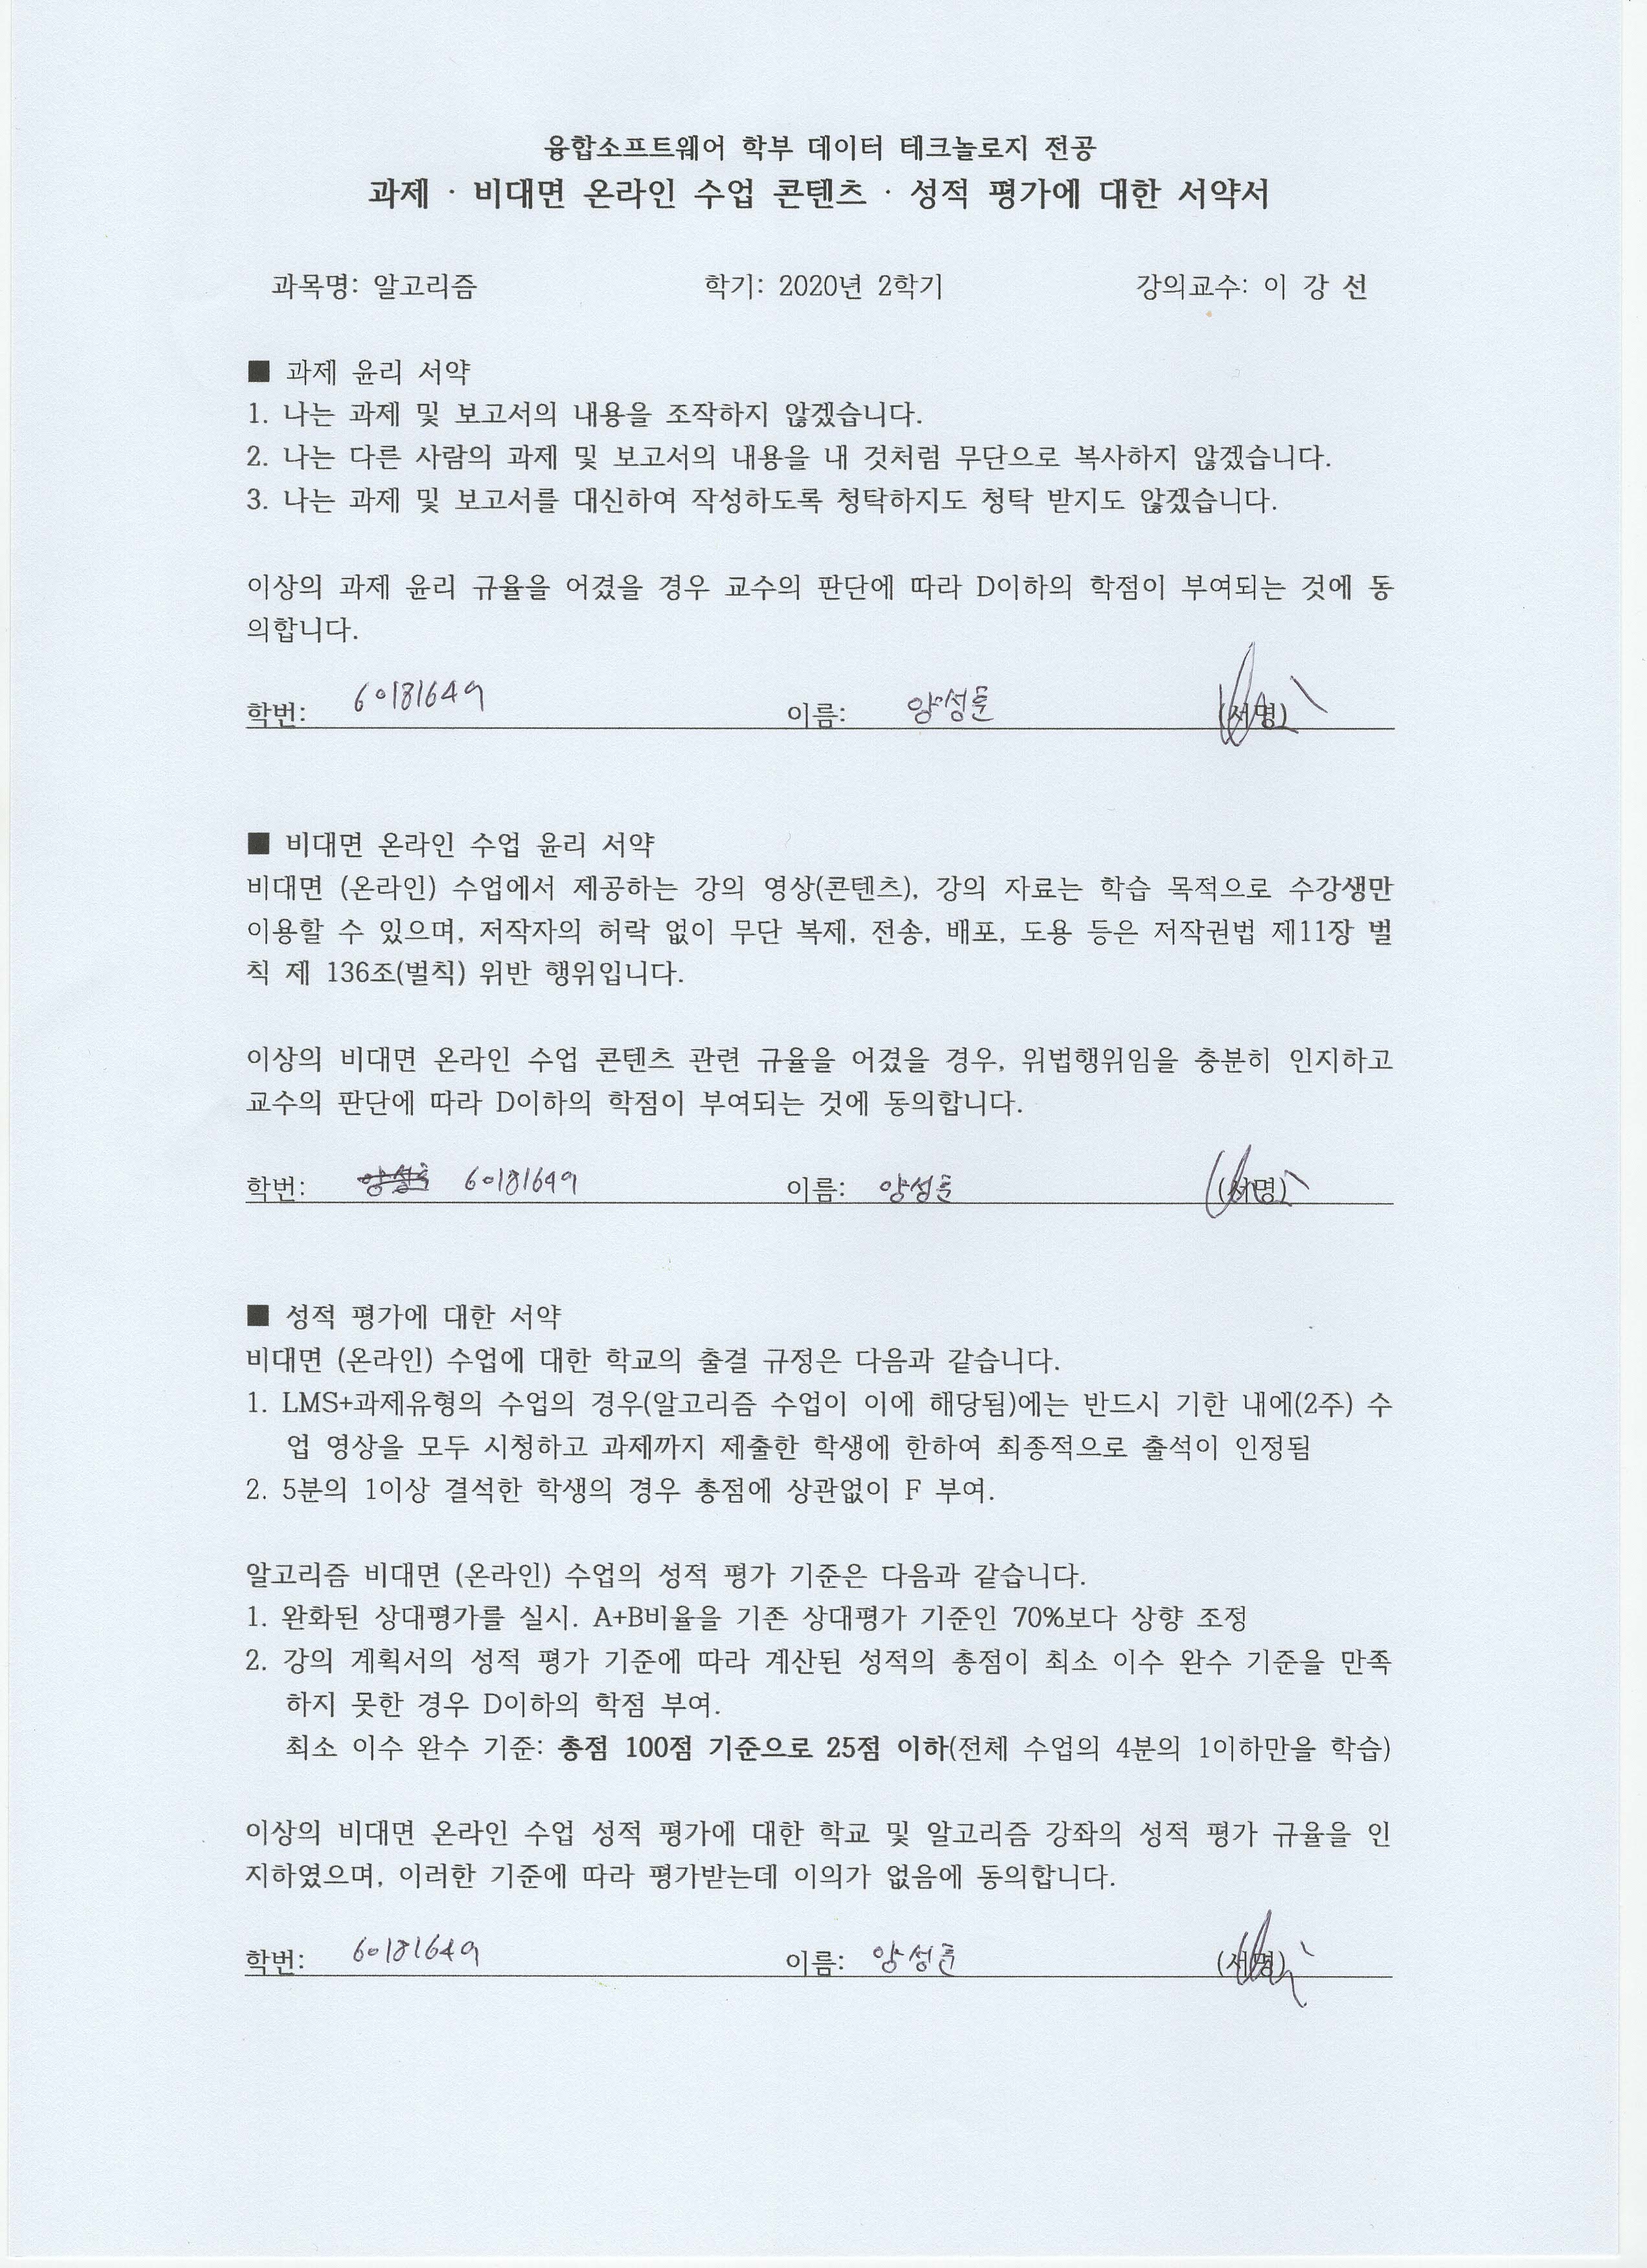 융합소프트웨어 학부 데이터 테크놀로지 전공
과제 · 비대면 온라인 수업 콘텐츠 · 성적 평가에 대한 서약서
과목명: 알고리즘 학기: 2020년 2학기 강의교수: 이 강 선
■ 과제 윤리 서약
1. 나는 과제 및 보고서의 내용을 조작하지 않겠습니다.
2. 나는 다른 사람의 과제 및 보고서의 내용을 내 것처럼 무단으로 복사하지 않겠습니다.
3. 나는 과제 및 보고서를 대신하여 작성하도록 청탁하지도 청탁 받지도 않겠습니다.
이상의 과제 윤리 규율을 어겼을 경우 교수의 판단에 따라 D이하의 학점이 부여되는 것에 동
의합니다.
학번: 60181649 이름: 양성륜 (서명)
■ 비대면 온라인 수업 윤리 서약
비대면 (온라인) 수업에서 제공하는 강의 영상(콘텐츠), 강의 자료는 학습 목적으로 수강생만
이용할 수 있으며, 저작자의 허락 없이 무단 복제, 전송, 배포, 도용 등은 저작권법 제11장 벌
칙 제 136조(벌칙) 위반 행위입니다.
이상의 비대면 온라인 수업 콘텐츠 관련 규율을 어겼을 경우, 위법행위임을 충분히 인지하고
교수의 판단에 따라 D이하의 학점이 부여되는 것에 동의합니다.
학번: 60181649 이름: 양성륜 (서명)
■ 성적 평가에 대한 서약
비대면 (온라인) 수업에 대한 학교의 출결 규정은 다음과 같습니다.
1. LMS+과제유형의 수업의 경우(알고리즘 수업이 이에 해당됨)에는 반드시 기한 내에(2주) 수
업 영상을 모두 시청하고 과제까지 제출한 학생에 한하여 최종적으로 출석이 인정됨
2. 5분의 1이상 결석한 학생의 경우 총점에 상관없이 F 부여.
알고리즘 비대면 (온라인) 수업의 성적 평가 기준은 다음과 같습니다.
1. 완화된 상대평가를 실시. A+B비율을 기존 상대평가 기준인 70%보다 상향 조정
2. 강의 계획서의 성적 평가 기준에 따라 계산된 성적의 총점이 최소 이수 완수 기준을 만족
하지 못한 경우 D이하의 학점 부여.
최소 이수 완수 기준: 총점 100점 기준으로 25점 이하(전체 수업의 4분의 1이하만을 학습)
이상의 비대면 온라인 수업 성적 평가에 대한 학교 및 알고리즘 강좌의 성적 평가 규율을 인
지하였으며, 이러한 기준에 따라 평가받는데 이의가 없음에 동의합니다.
학번: 60181649 이름: 양성륜 (서명)